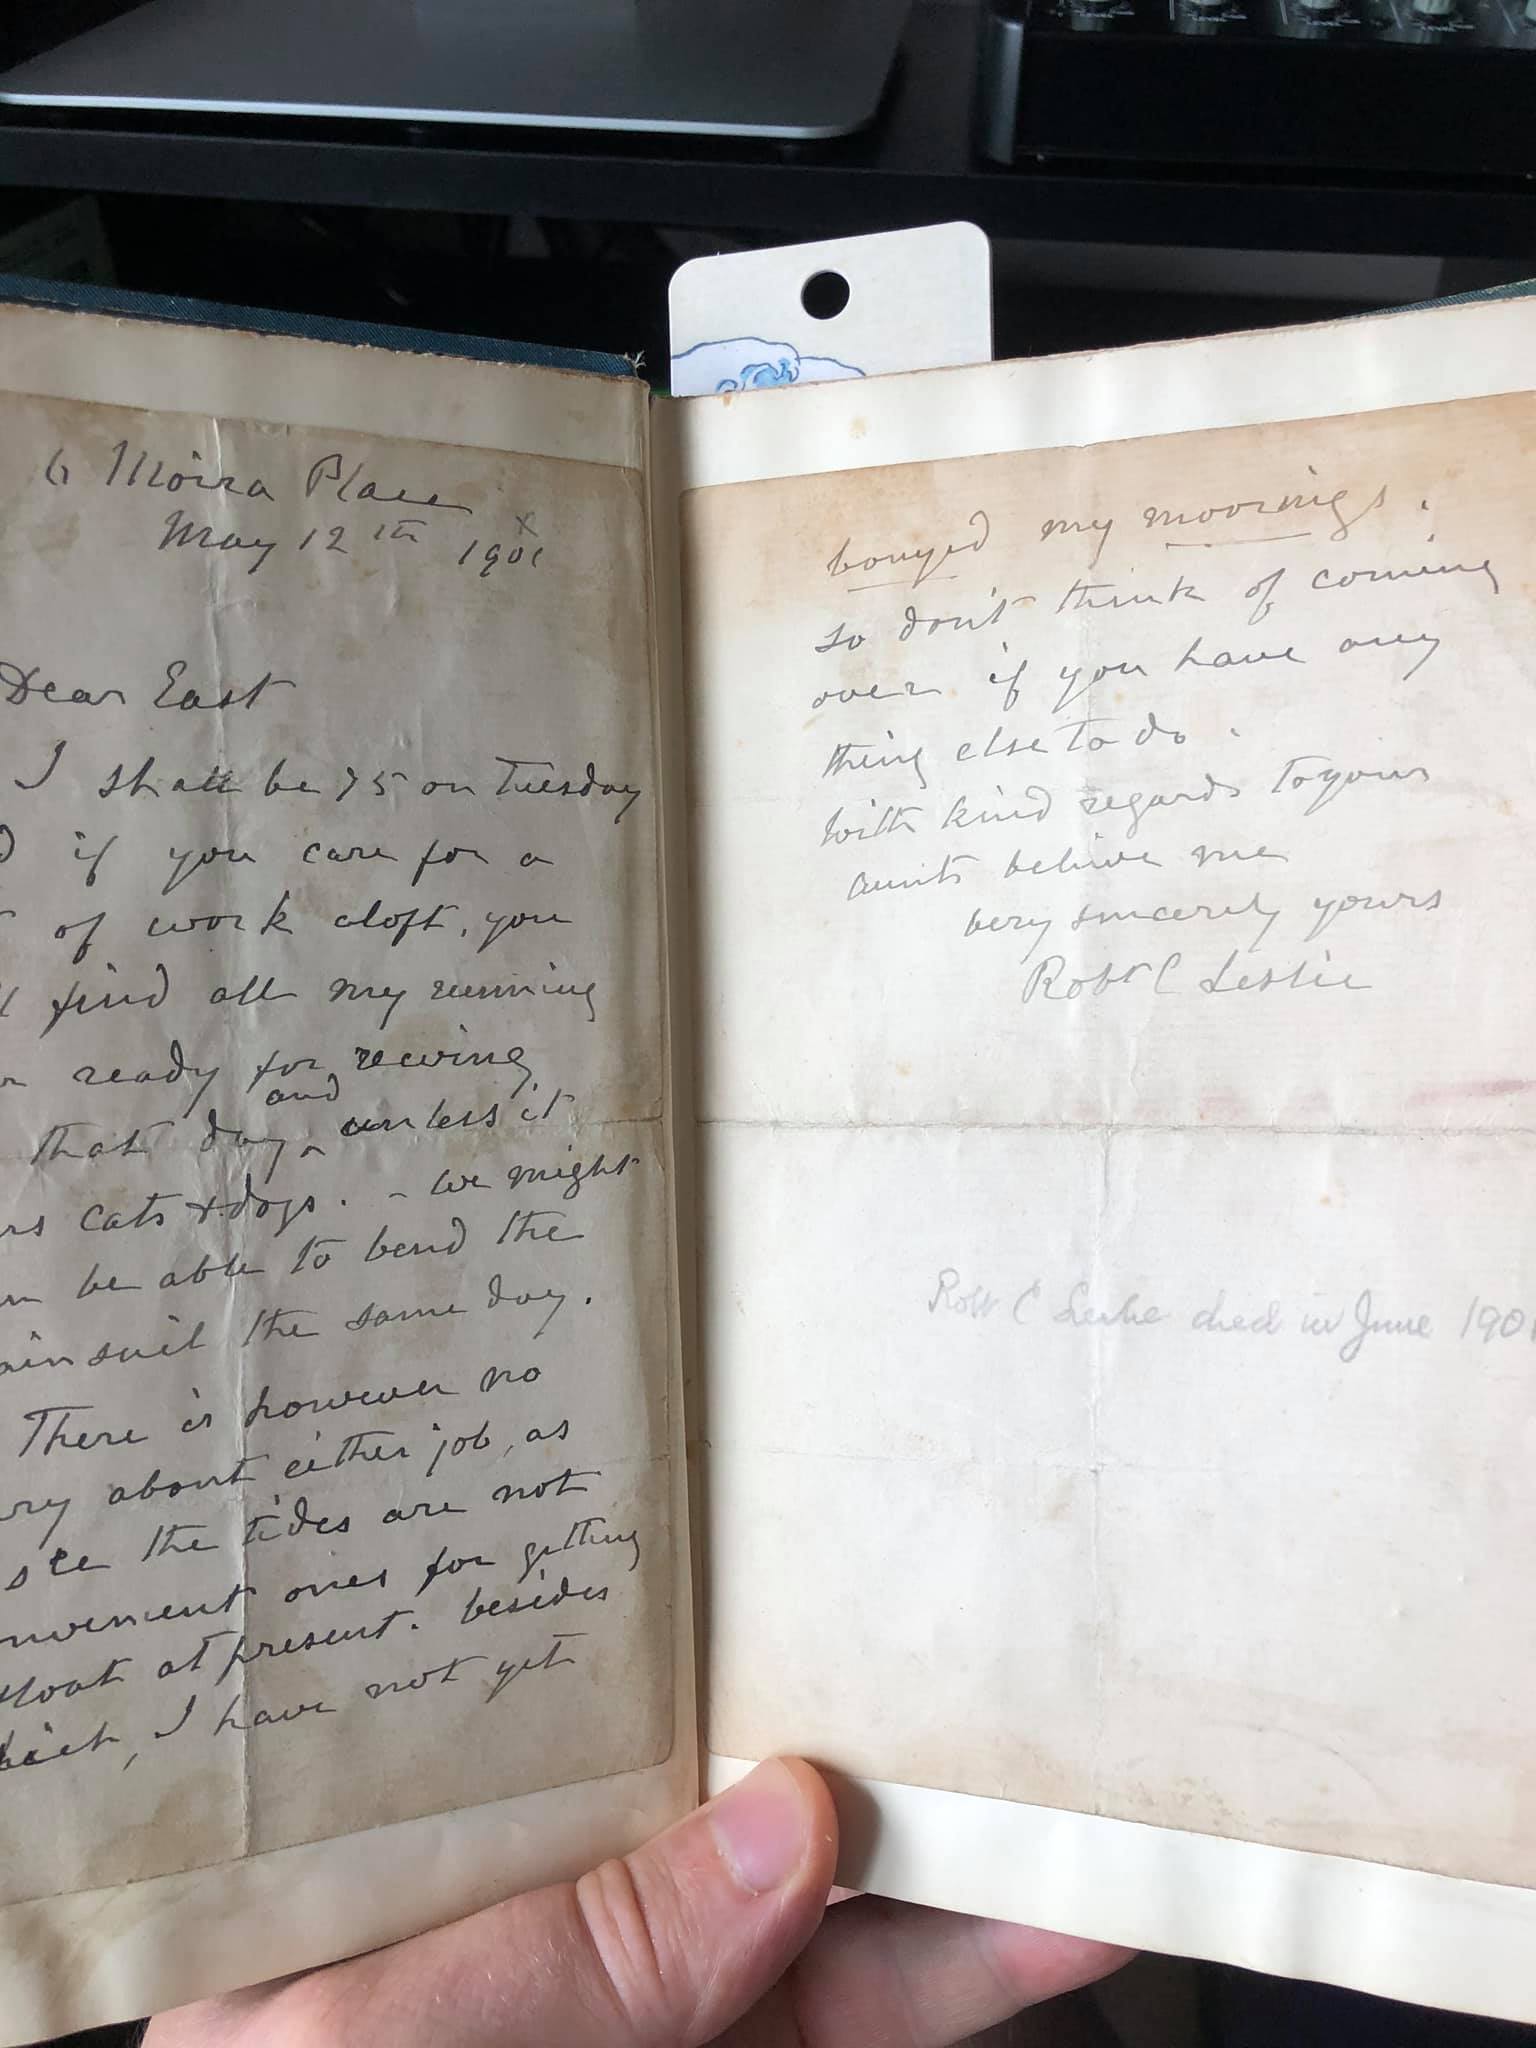 6 Moira Place
May 12th 1901
x
Dear East
I shall be 75 on Tuesday
if you care for a
of work aloft, you
find all my running
ready for reeving
that day ^ and unless it
cats & dogs. - we might
be able to bend the
sail the same day.
There is however no
about either job, as
see the tides are not
ones for getting
at present. besides
I have not yet
bouyed my moorings.
so don't think of coming
over if you have any
thing else to do.
With kind regards to your
aunts believe me
very sincerely yours
Robt C Leslie
Robt C Leslie died in June 1901